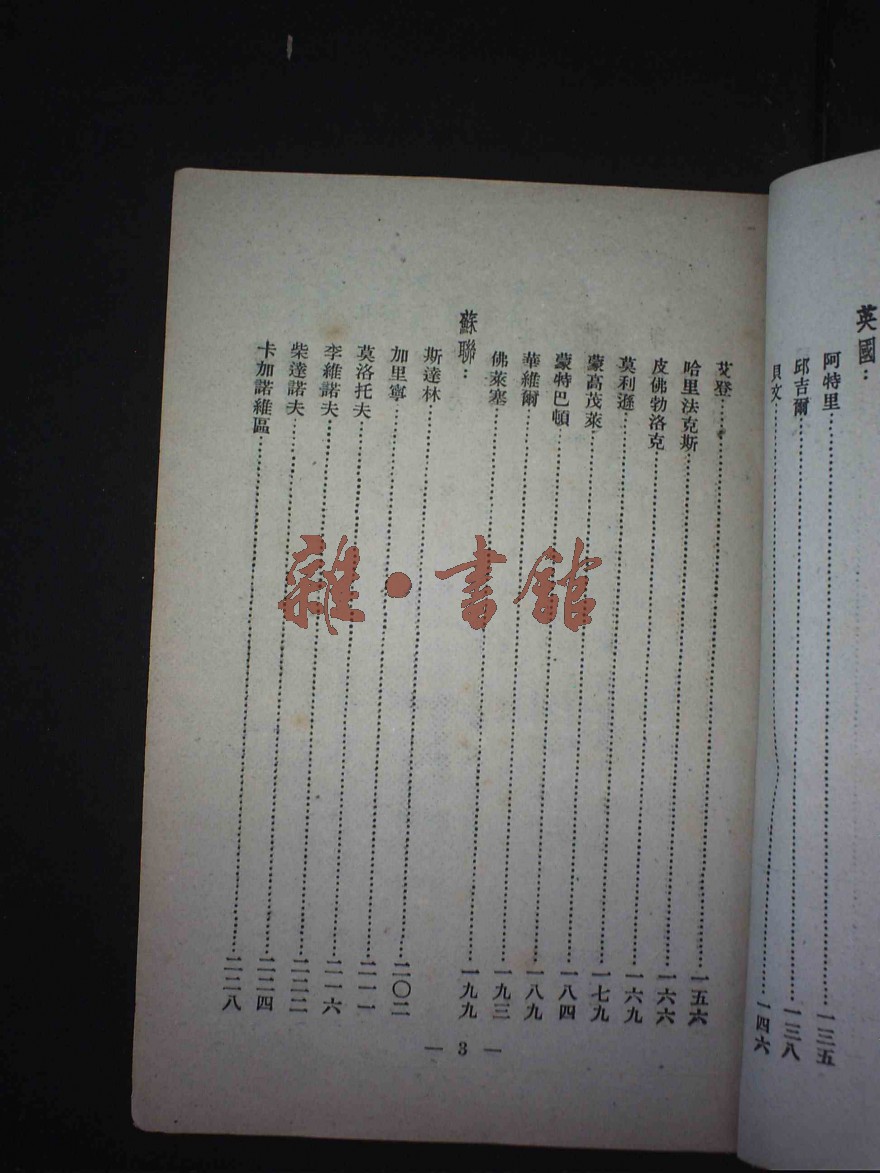 英國：
阿特里……一三五
邱吉爾……一三八
貝文……一四六
艾登……一五六
哈里法克斯……一六六
皮佛勃洛克……一六九
莫利遜……一七九
蒙高茂萊……一八四
蒙特巴頓……一八九
華維爾……一九三
佛萊塞……一九九
蘇聯：
斯達林……二〇二
加里寧……二一一
莫洛托夫……二一六
李維諾夫……二二二
柴達諾夫……二二四
卡加諾維區……二二八
— 3 —
雜·書館